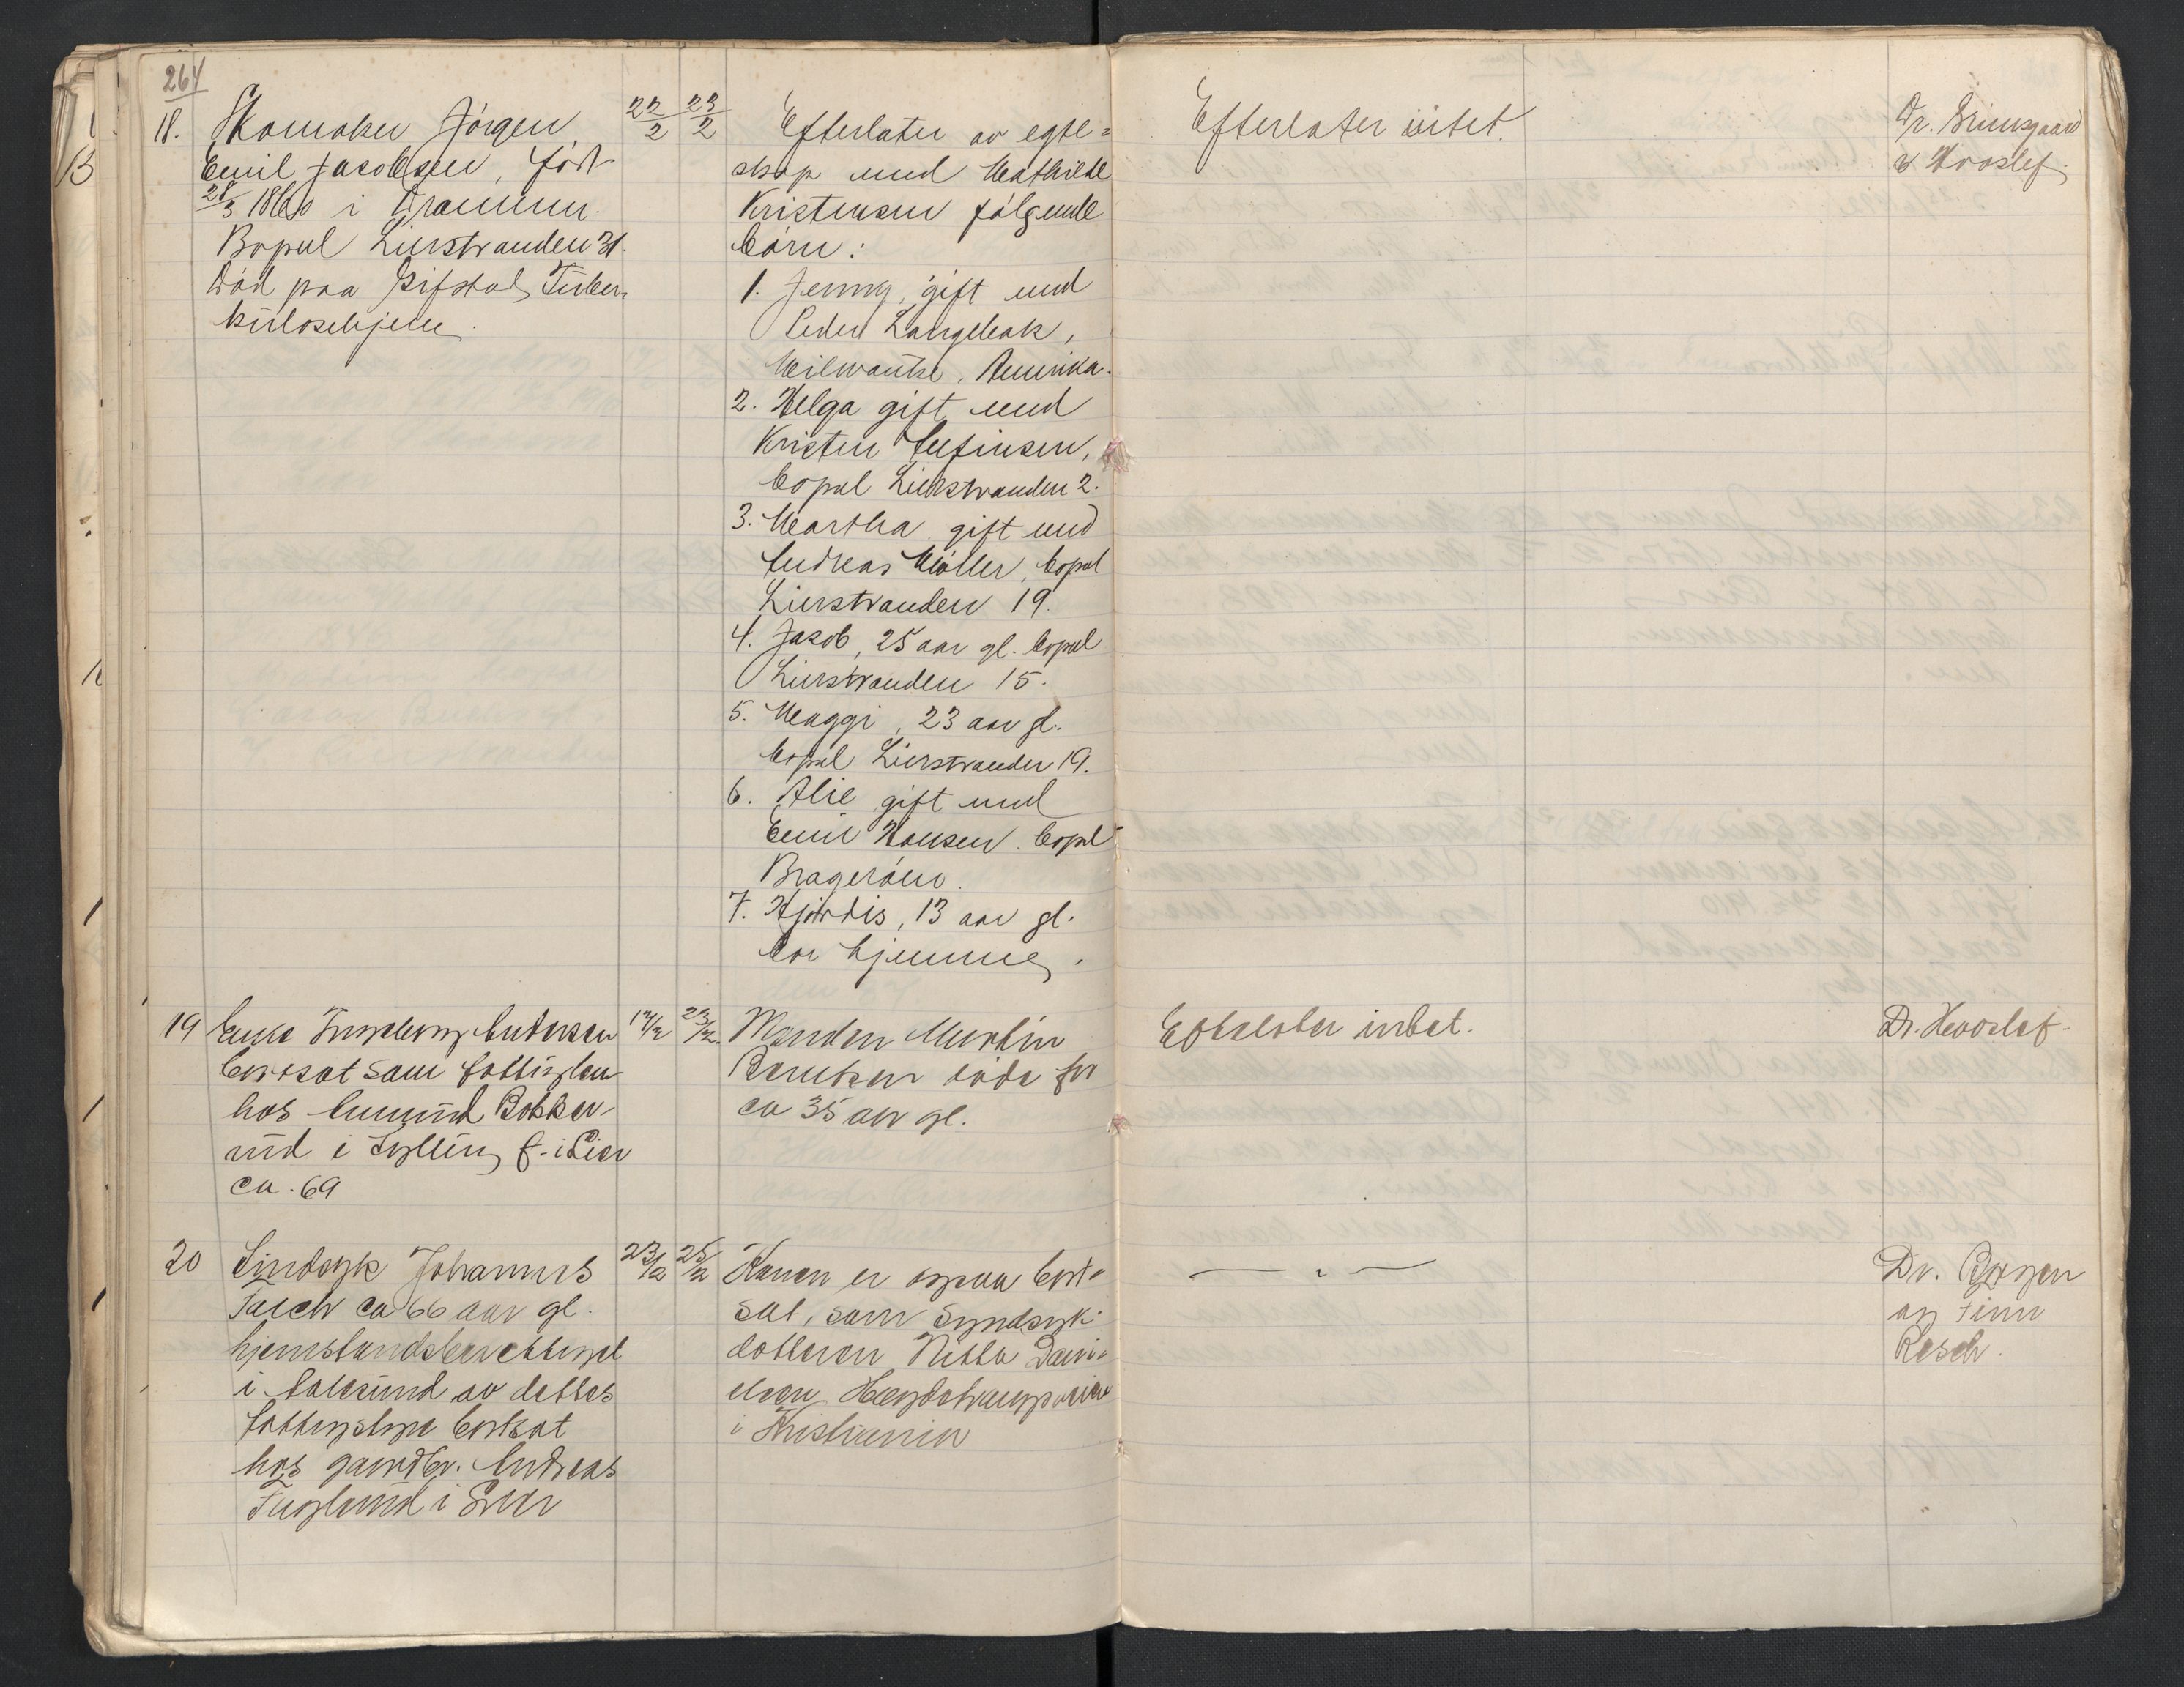 264
18. Skomaker Jörgen
Emil Jacobsen, född
28/3 1860 i Drammen.
Bopæl Lierstranden 31.
Död paa Gifstad Tuber-
kulosehjem.
22/2 23/2
Efterlater av egte-
skap med Mathilde
Kristensen følgende
børn:
1. Jenny, gift med
Peder Langebak,
Milwauke, Amerika.
2. Helga gift med
Kristen Enfinsen,
bopæl Lierstranden 2.
3. Martha gift med
Andreas Möller, bopæl
Lierstranden 19.
4. Jacob, 25 aar gl. bopæl
Lierstranden 15.
5. Maggi, 23 aar gl.
bopæl Lierstranden 19.
6. Alie gift med
Emil Hansen. bopæl
Bragerøen.
7. Hjördis, 13 aar gl.
bor hjemme.
Efterlater intet.
Dr.
& Hvoslef.
19 Enke Andersen
bortsat som fattiglem
hos Amund Bokker-
ud i Sylling f. i Lier
ca. 69
17/2 23/2.
Manden Martin
Berntsen døde for
ca 35 aar gl.
Efterlater intet.
Dr. Hvoslef
20 Sindsyk Johannes
ca 66 aar gl.
hjemstandsberettiget
i Aalesund av dettes
fattigstyre bortsat
hos gaardbr. Andreas
Fuglerud i Lier
23/2 25/2
Konen er ogsaa bort-
sat, som syndsyk
datteren Netta Dani-
elsen
i Kristiania
— " —
Dr. Borgen
og Finn
Resch.